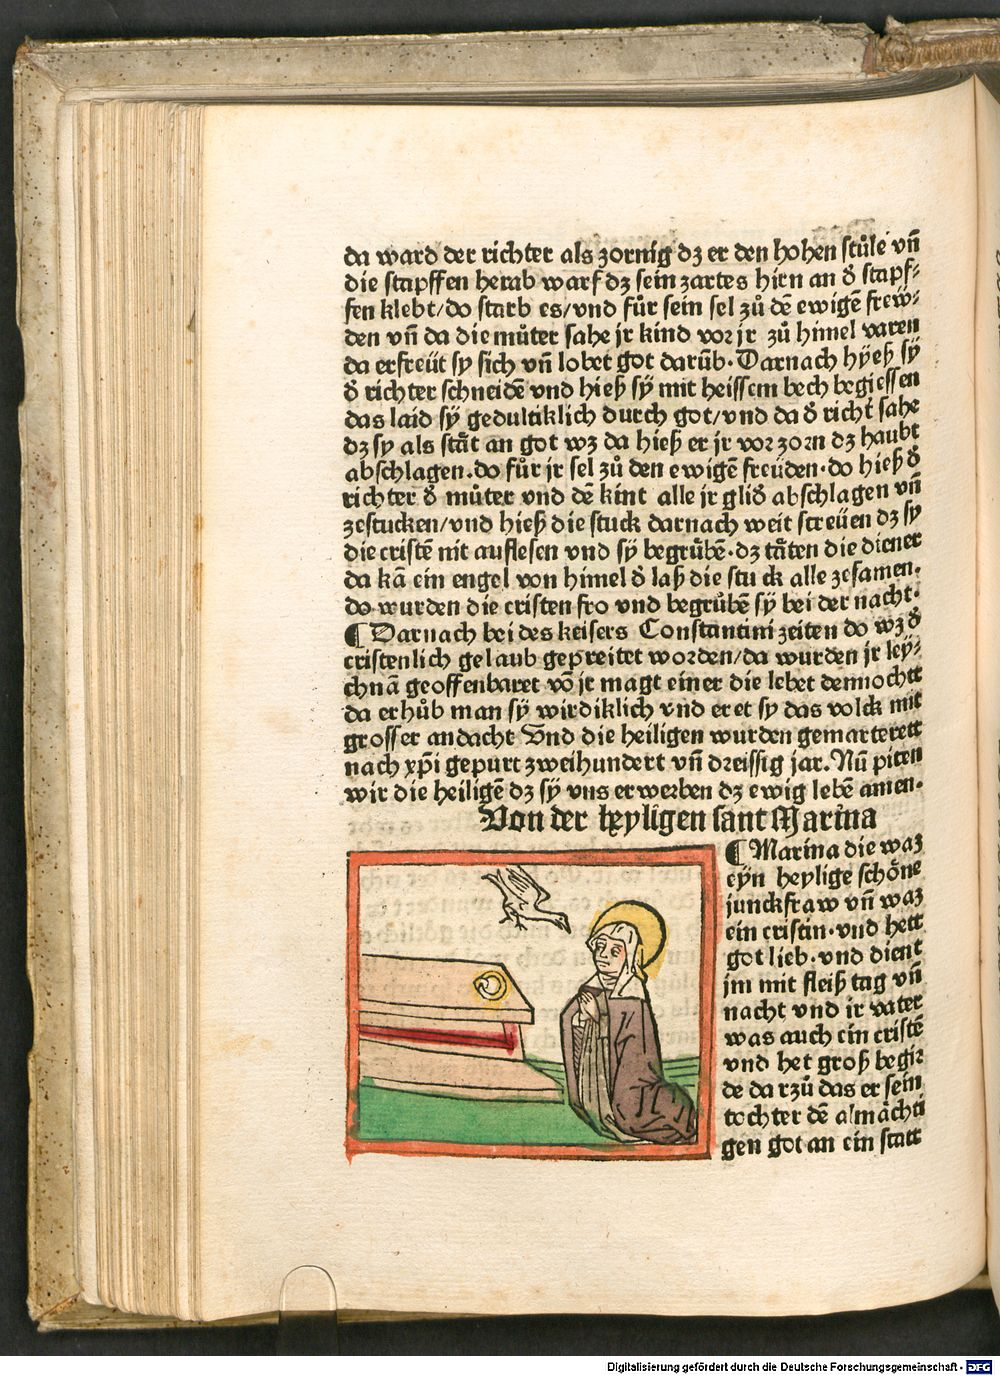 da ward der richter als zornig dz er den hohen stůle vñ
die stapffen herab warf dz sein zartes hirn an d̕ stapf⸗
fen klebt/do starb es/vnd fůr sein sel zů dē ewigē frew⸗
den vñ da die můter sahe jr kind vor jr zů himel varen
da erfreüt sy sich vñ lobet got darūb. Darnach hÿeß sÿ
d̕ richter schneidē vnd hieß sÿ mit heissem bech begiessen
das laid sÿ gedultiklich durch got/vnd da d̕ richt̕ sahe
dz sy als stät an got wz da hieß er jr vor zorn dz haubt
abschlagen. do fůr jr sel zů den ewigē freüden. do hieß d̕
richter d̕ můter vnd dē kint alle jr glid̕ abschlagen vñ
zestucken/vnd hieß die stuck darnach weit streüen dz sy
die cristē nit auflesen vnd sÿ begrůbē. dz täten die diener
da kā ein engel von himel d̕ laß die stuck alle zesamen.
do wurden die cristen fro vnd begrůbē sÿ bei der nacht.
¶ Darnach bei des keisers Constantini zeiten do wz d̕
cristenlich gelaub gepreitet worden/da wurden jr ley⸗
chnā geoffenbaret vō jr magt einer die lebet dennocht
da erhůb man sÿ wirdiklich vnd eret sy das volck mit
grosser andacht Vnd die heiligen wurden gemarterett
nach xp̄i gepurt zweihundert vñ dreissig jar. Nū piten
wir die heiligē dz sÿ vns erwerben dz ewig lebē amen.
Von der heyligen sant Marina
¶ Marina die waz
eyn heylige schöne
junckfraw vñ waz
ein cristin. vnd hett
got lieb. vnd dient
jm mit fleiß tag vñ
nacht vnd ir vater
was auch ein cristē
vnd het groß begir⸗
de darzů das er sein
tochter dē almächti
gen got an ein statt
Digitalisierung gefördert durch die Deutsche Forschungsgemeinschaft - DFG